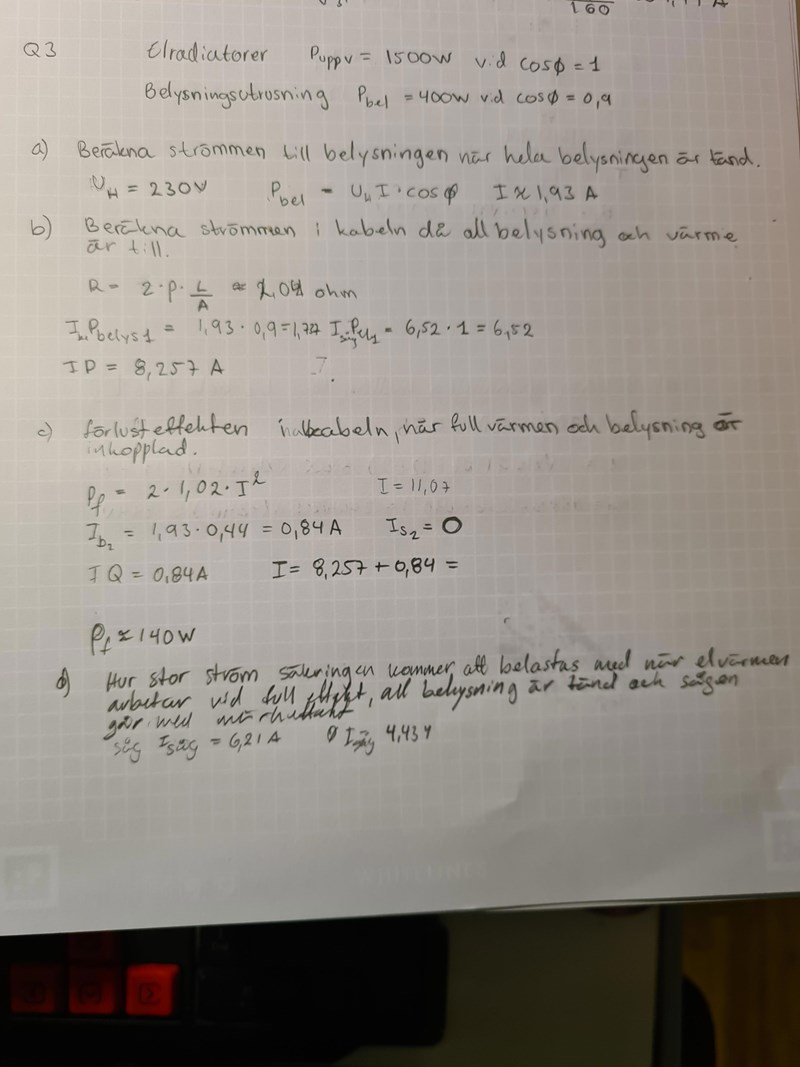 160
Q3 Elradiatorer Puppv = 1500W vid cosϕ = 1
Belysningsutrusning Pbel = 400W vid cosϕ = 0,9
a) Beräkna strömmen till belysningen när hela belysningen är tänd.
UH = 230V Pbel = UH I · cosϕ I ≈ 1,93 A
b) Beräkna strömmen i kabeln då all belysning och värme
är till.
R = 2 · ρ · L/A ≈ 2,04 ohm
Pbelys1 = 1,93 · 0,9 = 1,737 = 6,52 · 1 = 6,52
IP = 8,257 A
c) förlusteffekten kabeln, när full värmen och belysning är
inkopplad.
Pf = 2 · 1,02 · I² I = 11,07
Ib2 = 1,93 · 0,44 = 0,84 A Is2 = 0
IQ = 0,84A I = 8,257 + 0,84 =
Pf ≈ 140W
d) Hur stor ström säkringen kommer att belastas med när elvärmen
arbetar vid full effekt, all belysning är tänd och sågen
går med märkeffekt
såg Isåg = 6,21 A Isåg 4,434